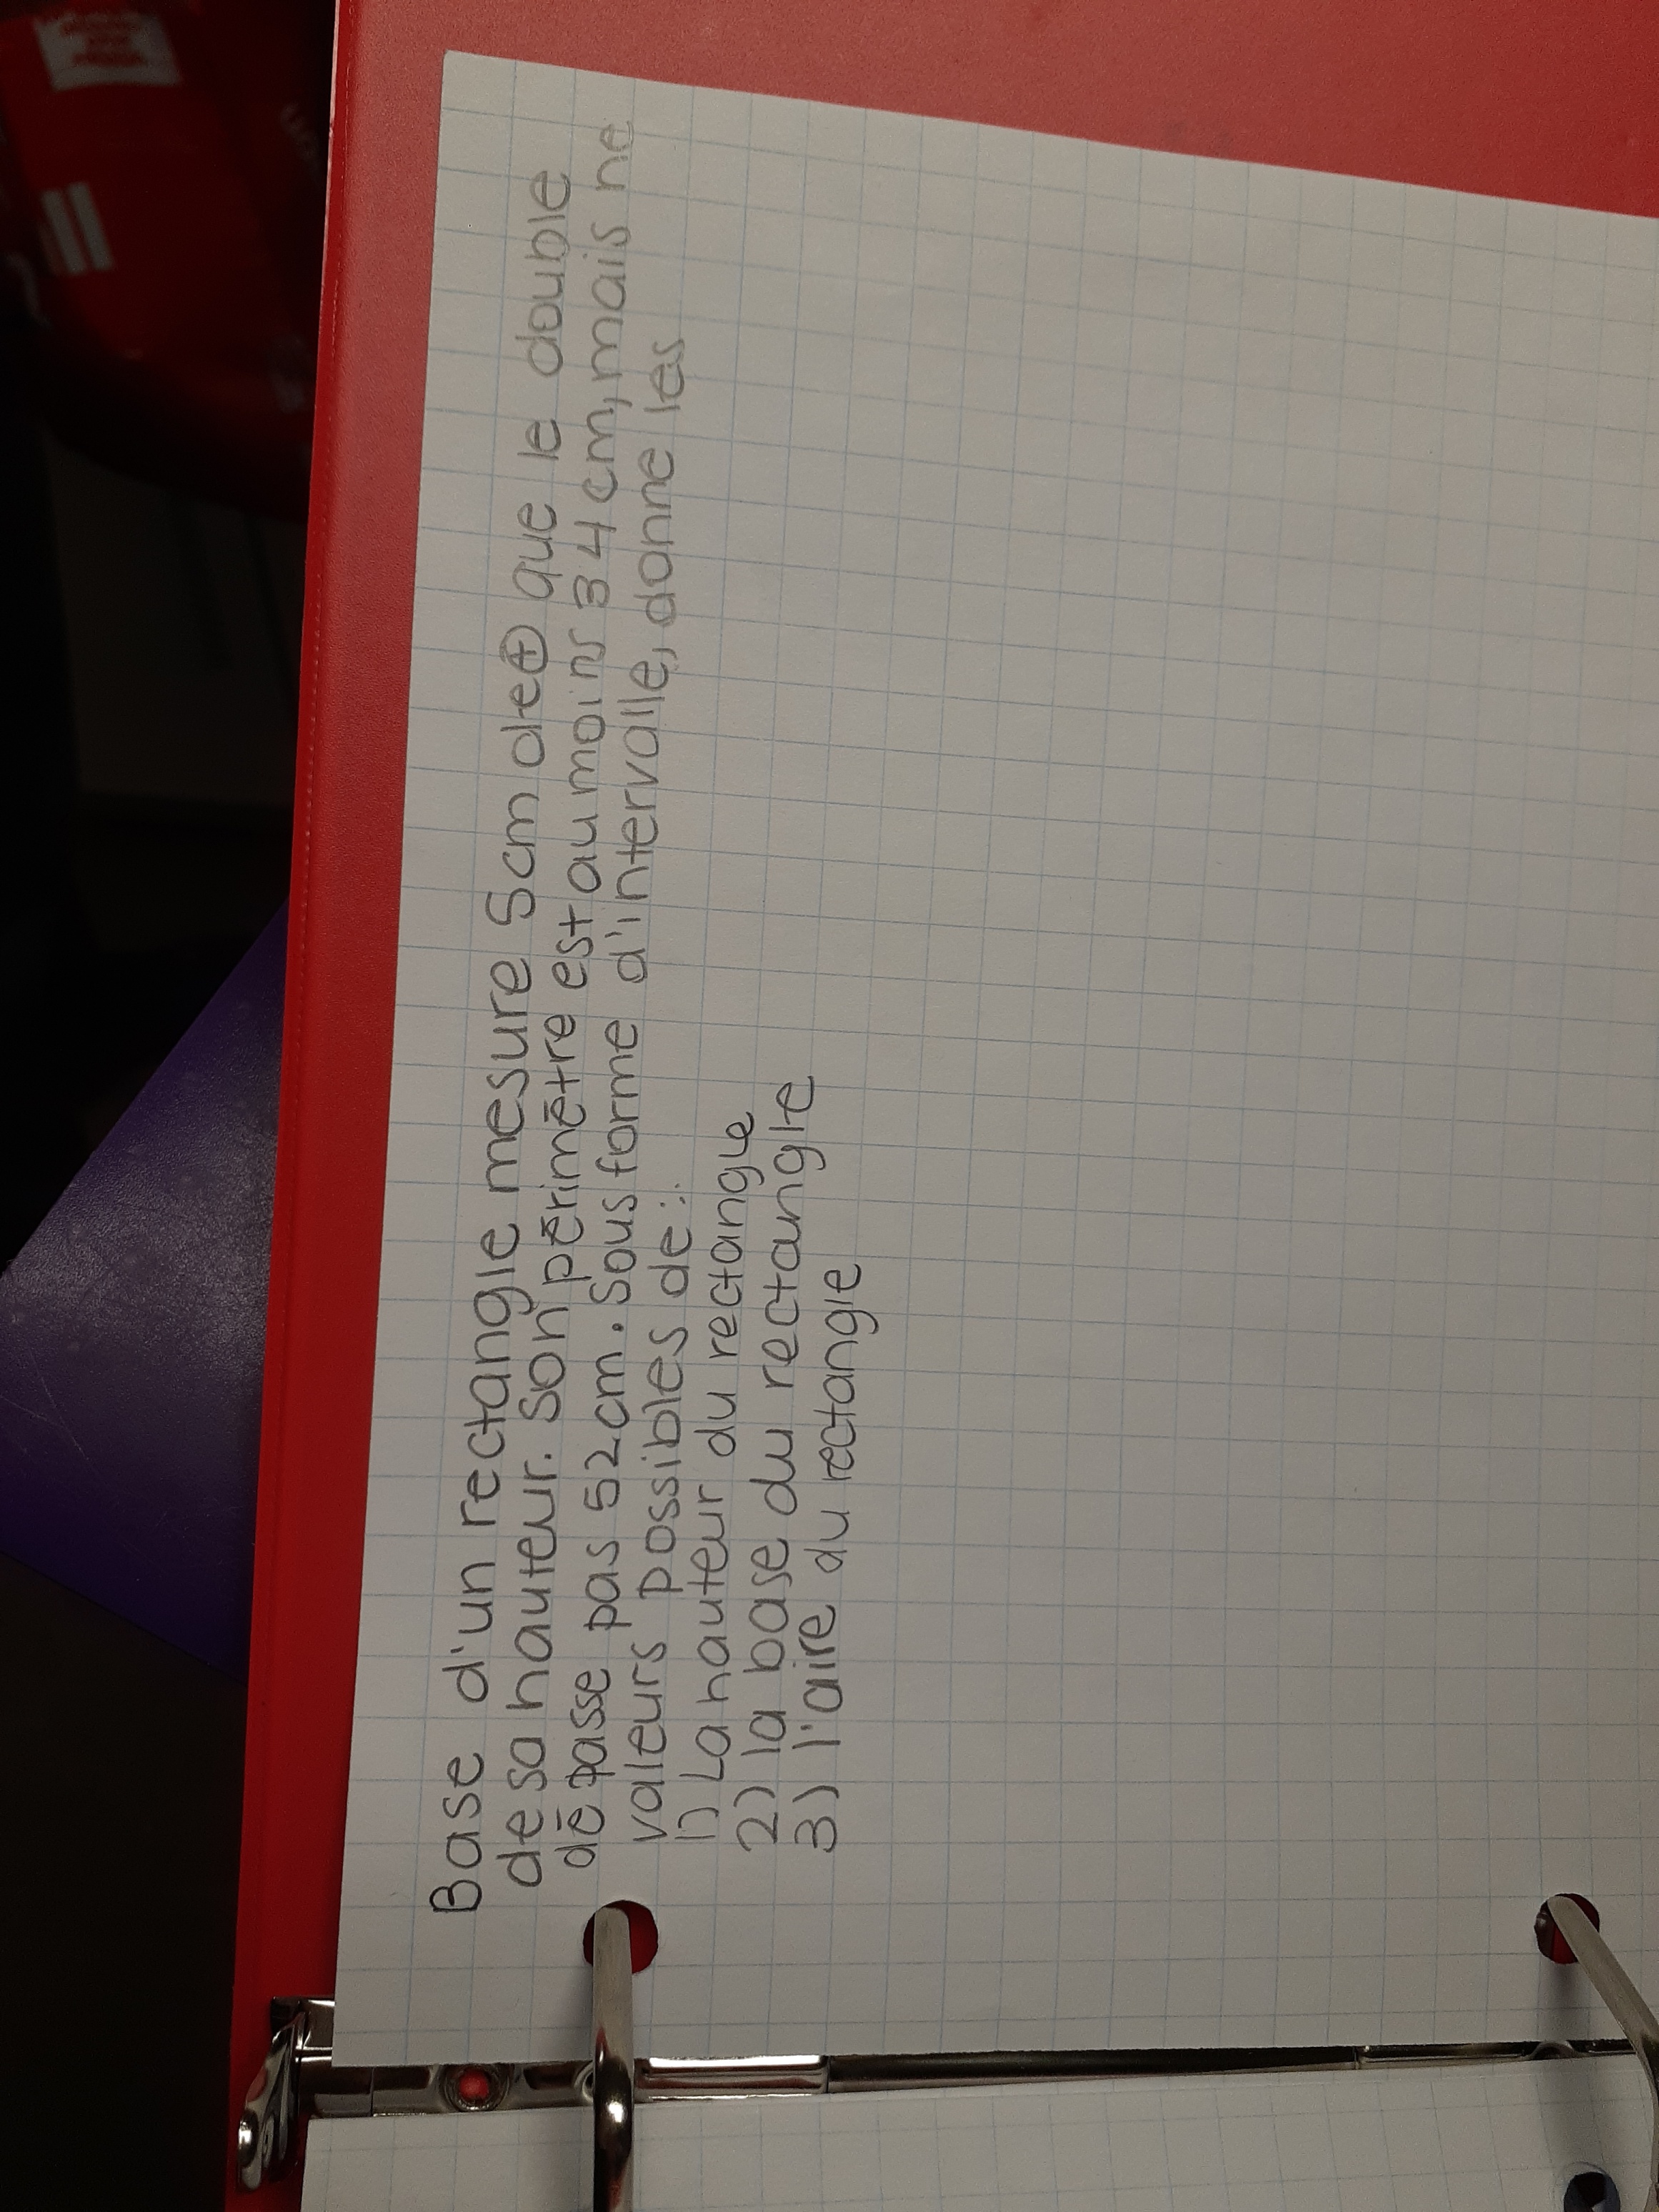 Base d'un rectangle mesure 5cm de ⊕ que le double
de sa hauteur. Son périmètre est au moins 34cm, mais ne
dépasse pas 52cm. Sous forme d'intervalle, donne les
valeurs possibles de :
1) La hauteur du rectangue
2) la base du rectangle
3) l'aire du rectangle